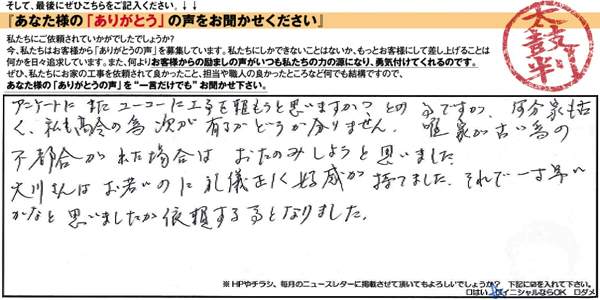 そして、最後にぜひこちらをご記入ください。↓↓
『あなた様の「ありがとう」の声をお聞かせください』
私たちにご依頼されていかがでしたでしょうか？
今、私たちはお客様から「ありがとうの声」を募集しています。私たちにしかできないことはないか、もっとお客様にして差し上げることは
何かを日々追求しています。また、何よりお客様からの励ましの声がいつも私たちの力の源になり、勇気付けてくれるのです。
ぜひ、私たちにお家の工事を依頼されて良かったこと、担当や職人の良かったところなど何でも結構ですので、
あなた様の「ありがとうの声」を“一言だけでも”お聞かせ下さい。
太鼓判
アンケートに またユーコーに工事を頼もうと思いますか？との 事ですが、何分家も古
く、私も高令の為 次が有るかどうか分りません。唯 家が古い為の
不都合が 出た場合は おたのみしようと思いました。
大川さんはお若いのに礼儀正しく好感が 持てました。それで一寸早い
かなと 思いましたが依頼する事となりました。
※HPやチラシ、毎月のニュースレターに掲載させて頂いてもよろしいでしょうか？ 下記に☑を入れて下さい。
□はい ☑イニシャルならOK □ダメ